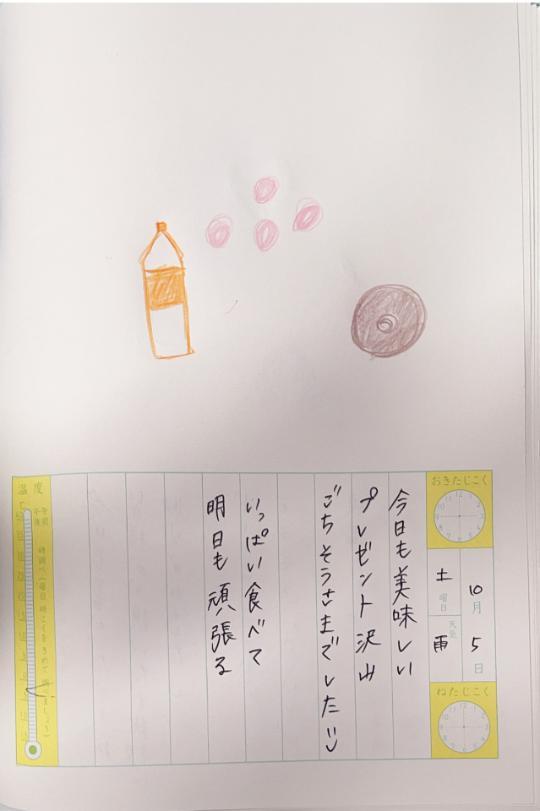 おきたじこく
10月5日
土曜日
天気 雨
ねたじこく
今日も美味しい
プレゼント沢山
ごちそうさまでした
いっぱい食べて
明日も頑張る
温度